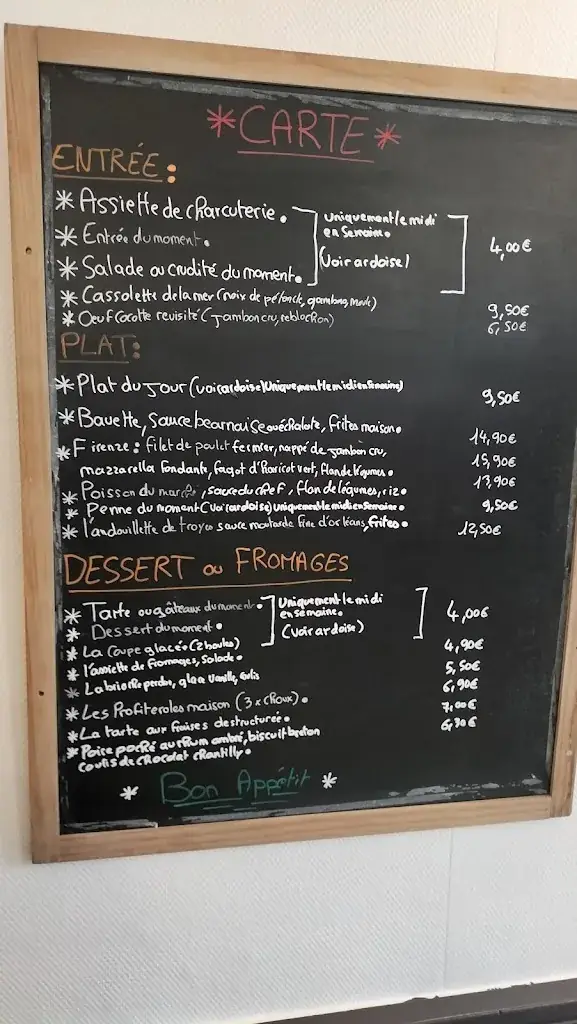 *CARTE*
ENTRÉE:
* Assiette de charcuterie.
* Entrée du moment.
* Salade ou crudité du moment.
uniquement le midi
en semaine.
(voir ardoise)
4,00€
* Cassolette de la mer (noix de pétoncle, gambas, moule) 9,50€
* Oeuf cocotte revisité (Jambon cru, reblochon) 6,50€
PLAT:
* Plat du Jour (voir ardoise) Uniquement le midi en semaine) 9,50€
* Bavette, sauce bearnaise ou échalote, frites maison. 14,90€
* Firenze: filet de poulet fermier, nappé de jambon cru, 15,90€
mazzarella fondante, fagot d'haricot vert, flan de légumes.
* Poisson du marché, sauce du chef, flan de légumes, riz. 13,90€
* Penne du moment (Voir ardoise) Uniquement le midi en semaine 9,50€
* l'andouillette de troyes sauce moutarde fine d'orléans, frites. 12,50€
DESSERT ou FROMAGES
* Tarte ou gâteaux du moment.
* Dessert du moment.
Uniquement le midi
en semaine.
(voir ardoise)
4,00€
* La coupe glacée (2 boules) 4,90€
* l'assiette de fromages, salade. 5,50€
* La brioche perdue, glace vanille, 6,90€
* Les Profiteroles maison (3 x choux). 7,00€
* La tarte aux fraises destructurée. 6,30€
* Poire poché au rhum ambré, biscuit breton
coulis de chocolat chantilly.
* Bon Appétit *